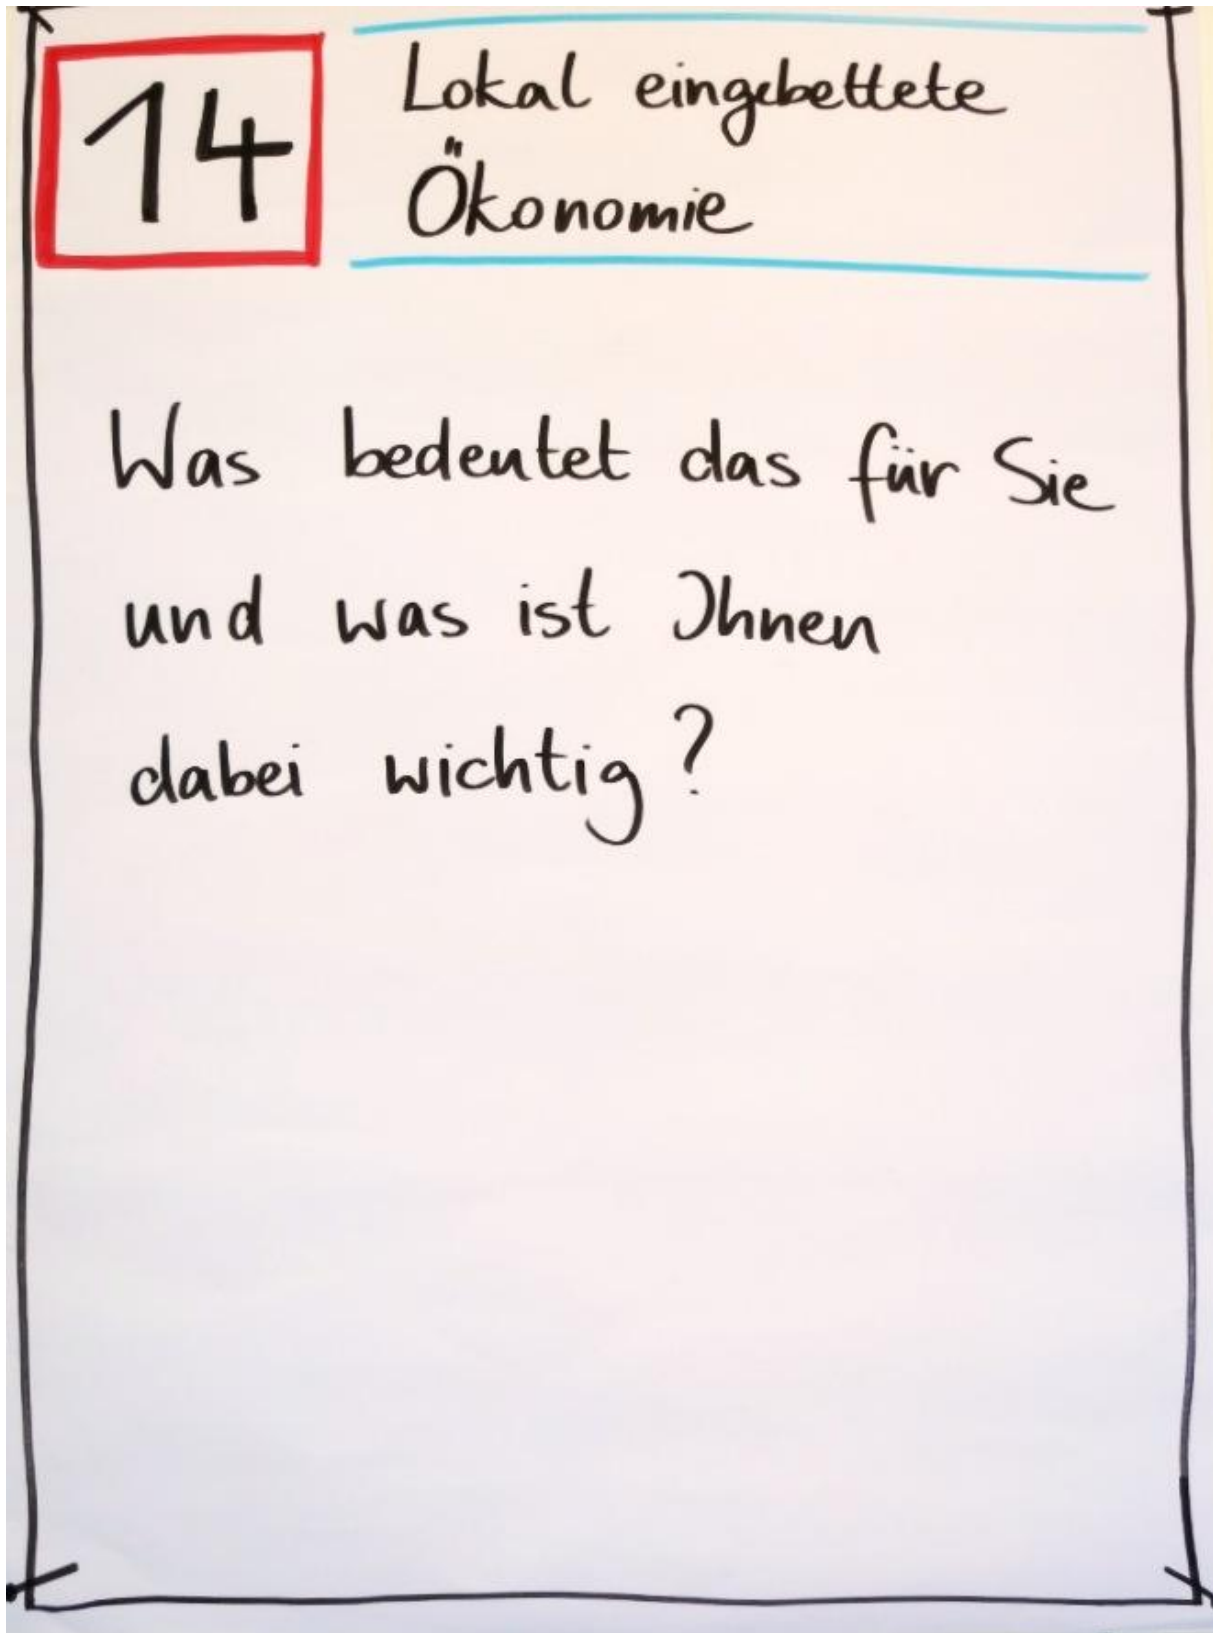 14
Lokal eingebettete
Ökonomie
Was bedeutet das für Sie
und was ist Ihnen
dabei wichtig?